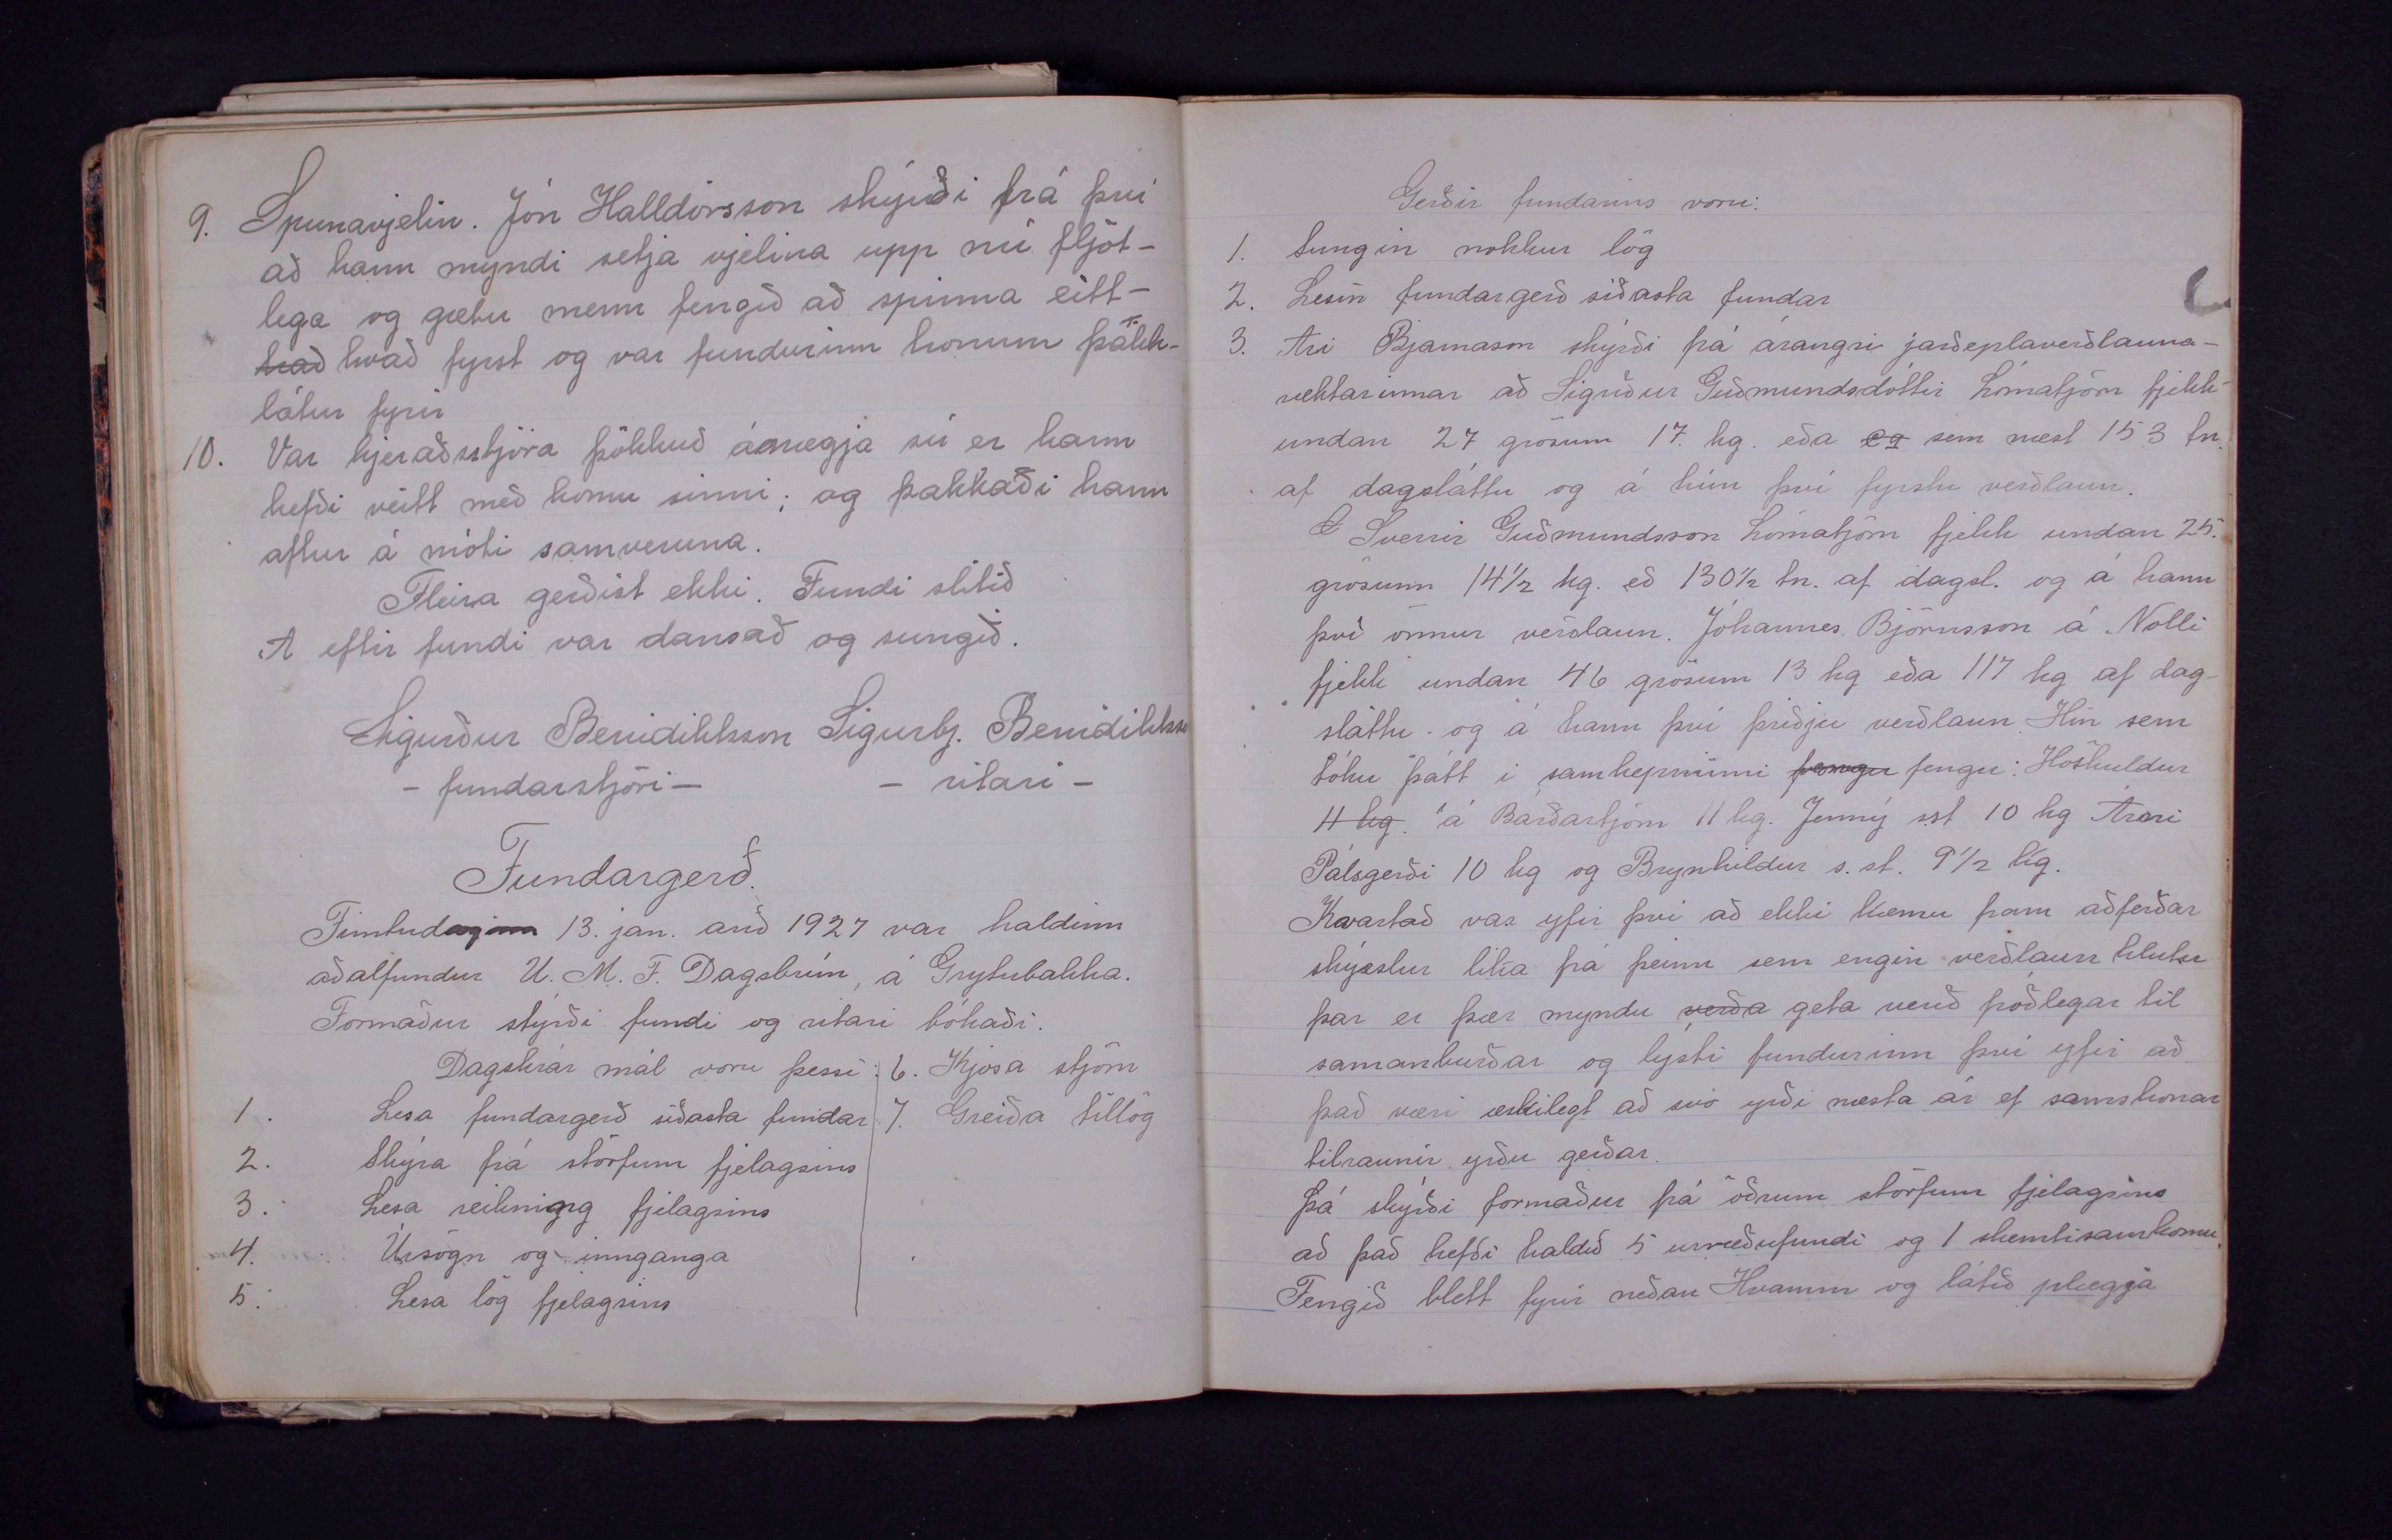 9. Spunavjelin. Jón Halldórsson skýrði frá því
að hann myndi setja vjelina upp nú fljót-
lega og gætu menn fengið að spinna eitt-
hvað fyrst og var fundurinn honum þakk-
látur fyrir
10. Var hjeraðsstjóra þökkuð ánægja sú er hann
hefði veitt með komu sinni; og þakkaði hann
aftur á móti samveruna.
Fleira gerðist ekki. Fundi slitið
Á eftir fundi var dansað og sungið.
Sigurður Benidiktsson Sigurbj. Benidiktsso
- fundarstjóri - - ritari -
Fundargerð.
Fimtudaginn 13. jan. arið 1927 var haldinn
aðalfundur U. M. F. Dagsbrún, á Grýtubakka.
Formaður stýrði fundi og ritari bókaði.
Dagskrár mál voru þessi:
1. Lesa fundargerð síðasta fundar
2. Skýra frá störfum fjelagsins
3. Lesa reikning fjelagsins
4. Úrsögn og innganga
5. Lesa lög fjelagsins
6. Kjósa stjórn
7. Greiða tillög
Gerðir fundarins voru:
1. Sungin nokkur lög
2. Lesin fundargerð síðasta fundar
3. Ari Bjarnason skýrði frá árangri jarðeplaverðlauna-
ræktarinnar að Sigríður Guðmundsdóttir Lómatjörn fjekk
undan 27 grösum 17. kg. eða sem næst 153 tn.
af dagsláttu og á hún því fyrstu verðlaun.
Sverrir Guðmundsson Lómatjörn fjekk undan 25.
grösunn 14 1/2 kg. eð 130 1/2 tn. af dagsl. og á hann
því önnur verðlaun. Jóhannes Björnsson á Nolli
fjekk undan 46 grösum 13 kg eða 117 kg af dag-
sláttu og á hann því þriðju verðlaun. Hin sem
tóku þátt í samkepninni fengu: Höskuldur
11 kg. á Bárðartjörn 11 kg. Jenný sst 10 kg Árni
Pálsgerði 10 kg og Brynhildur s. st. 9 1/2 kg.
Kvartað var yfir því að ekki kæmu fram aðferðar
skýrslur líka frá þeim sem engin verðlaun hlutu
þar er þær myndu verða geta verið fróðlegar til
samanburðar og lýsti fundurinn því yfir að
það væri æskilegt að svo yrði næsta ár ef samskonar
tilraunir yrðu gerðar.
Þá skýrði formaður frá öðrum störfum fjelagsins
að það hefði haldið 5 umræðufundi og 1 skemtisamkomu.
Fengið blett fyrir neðan Hvamm og látið plægja